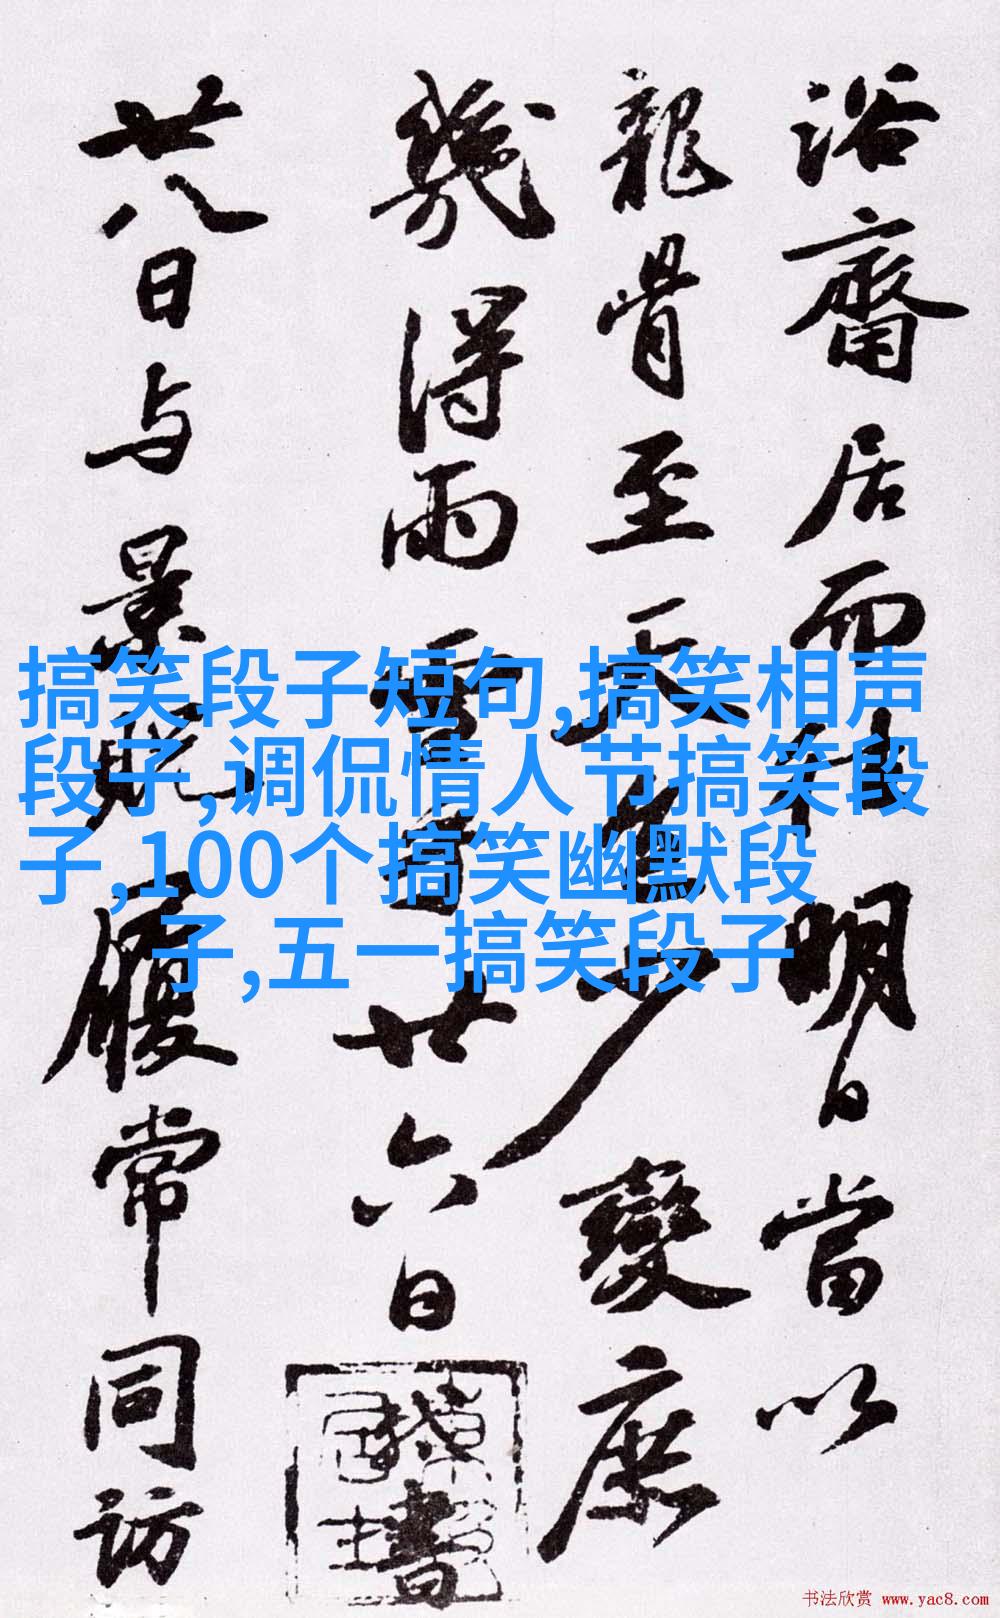 浴齋居而禱明日當以
龍骨至天色少變庶
幾得雨雪乎廿六日書
廿八日与景貺履常同訪
搞笑段子短句,搞笑相声
段子,调侃情人节搞笑段
子,100个搞笑幽默段
子,五一搞笑段子
书法欣赏 www.yac8.com